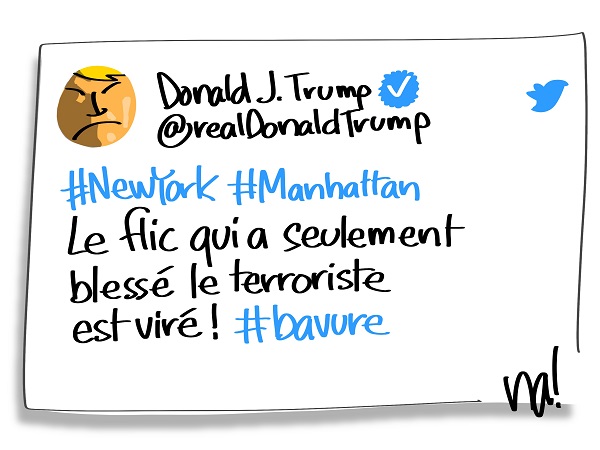 Donald J. Trump
@realDonaldTrump
#NewYork #Manhattan
Le flic qui a seulement
blessé le terroriste
est viré ! #bavure
na!